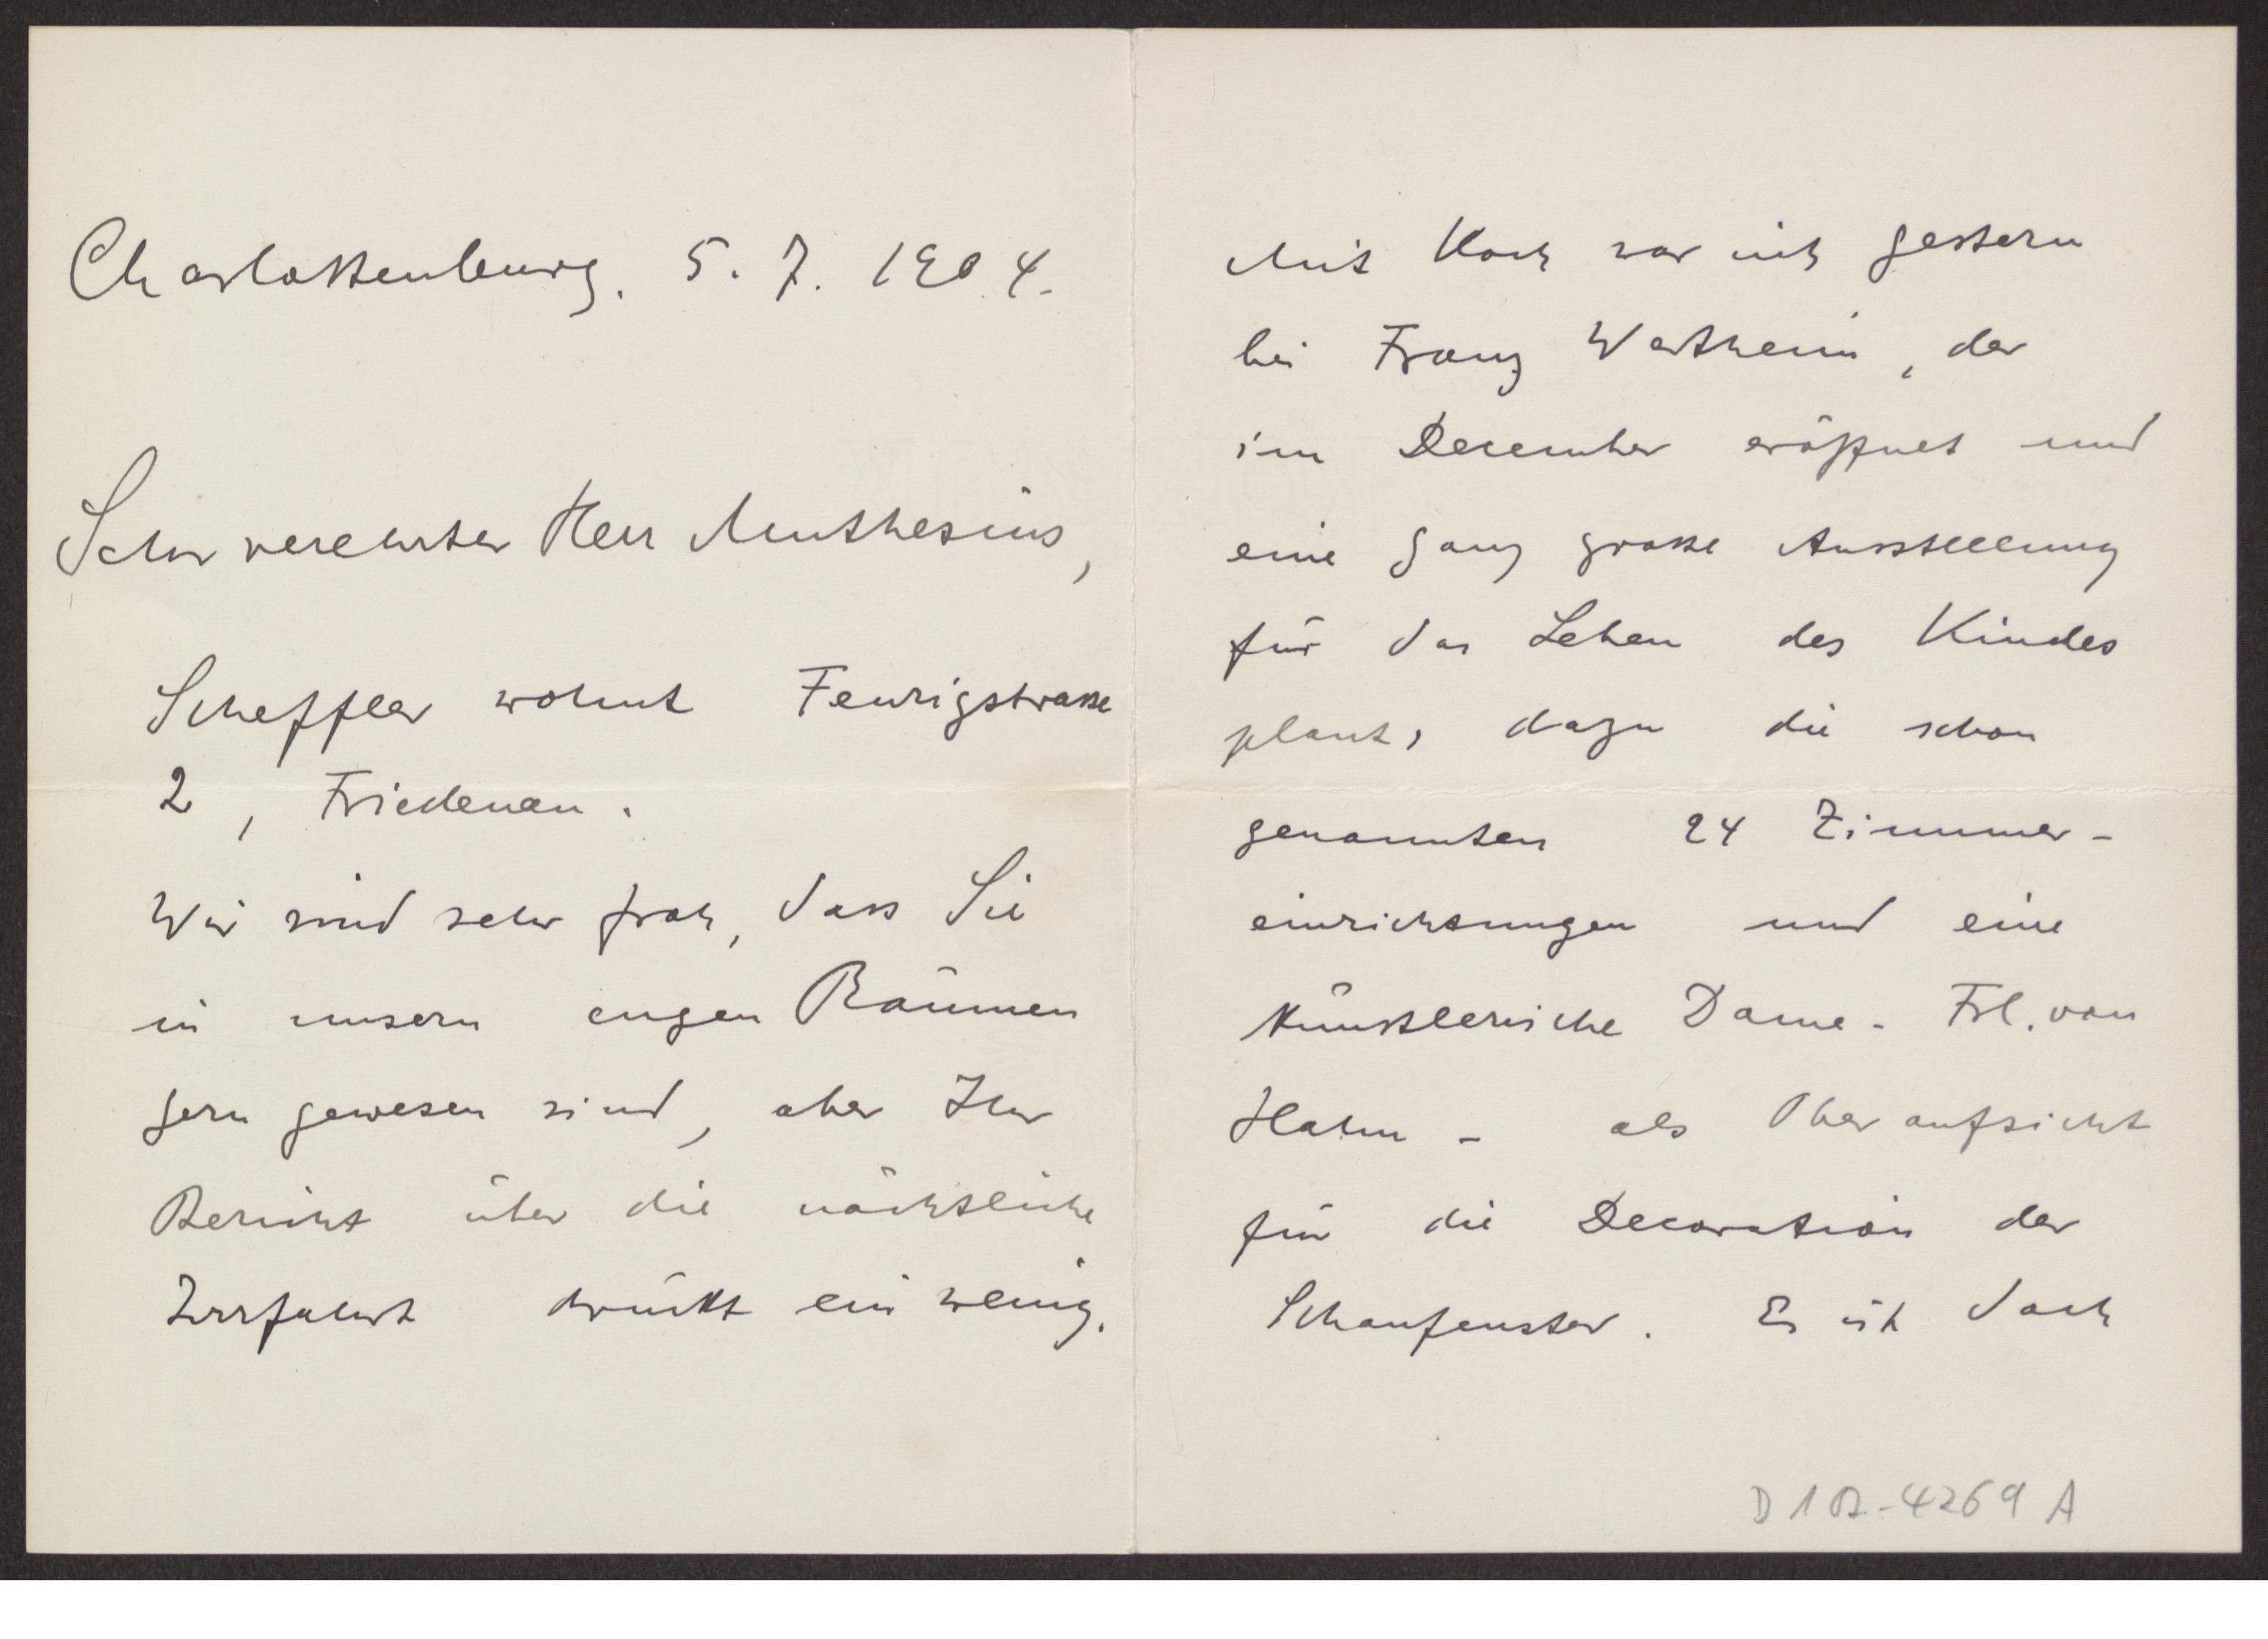 Charlottenburg. 5. 7. 1904.
Sehr verehrter Herr Muthesius,
Scheffler wohnt Feurigstrasse
2, Friedenau.
Wir sind sehr froh, dass Sie
in unsern engen Räumen
gern gewesen sind, aber Ihr
Bericht über die nächtliche
Irrfahrt drückt ein wenig.
Mit Koch war ich gestern
bei Franz Wertheim, der
im December eröffnet und
eine ganz grosse Ausstellung
für das Leben des Kindes
plant, dazu die schon
genannten 24 Zimmer-
einrichtungen und eine
künstlerische Dame - Frl. von
Hahn - als Oberaufsicht
für die Decoration der
Schaufenster. Es ist doch
D 102-4269 A